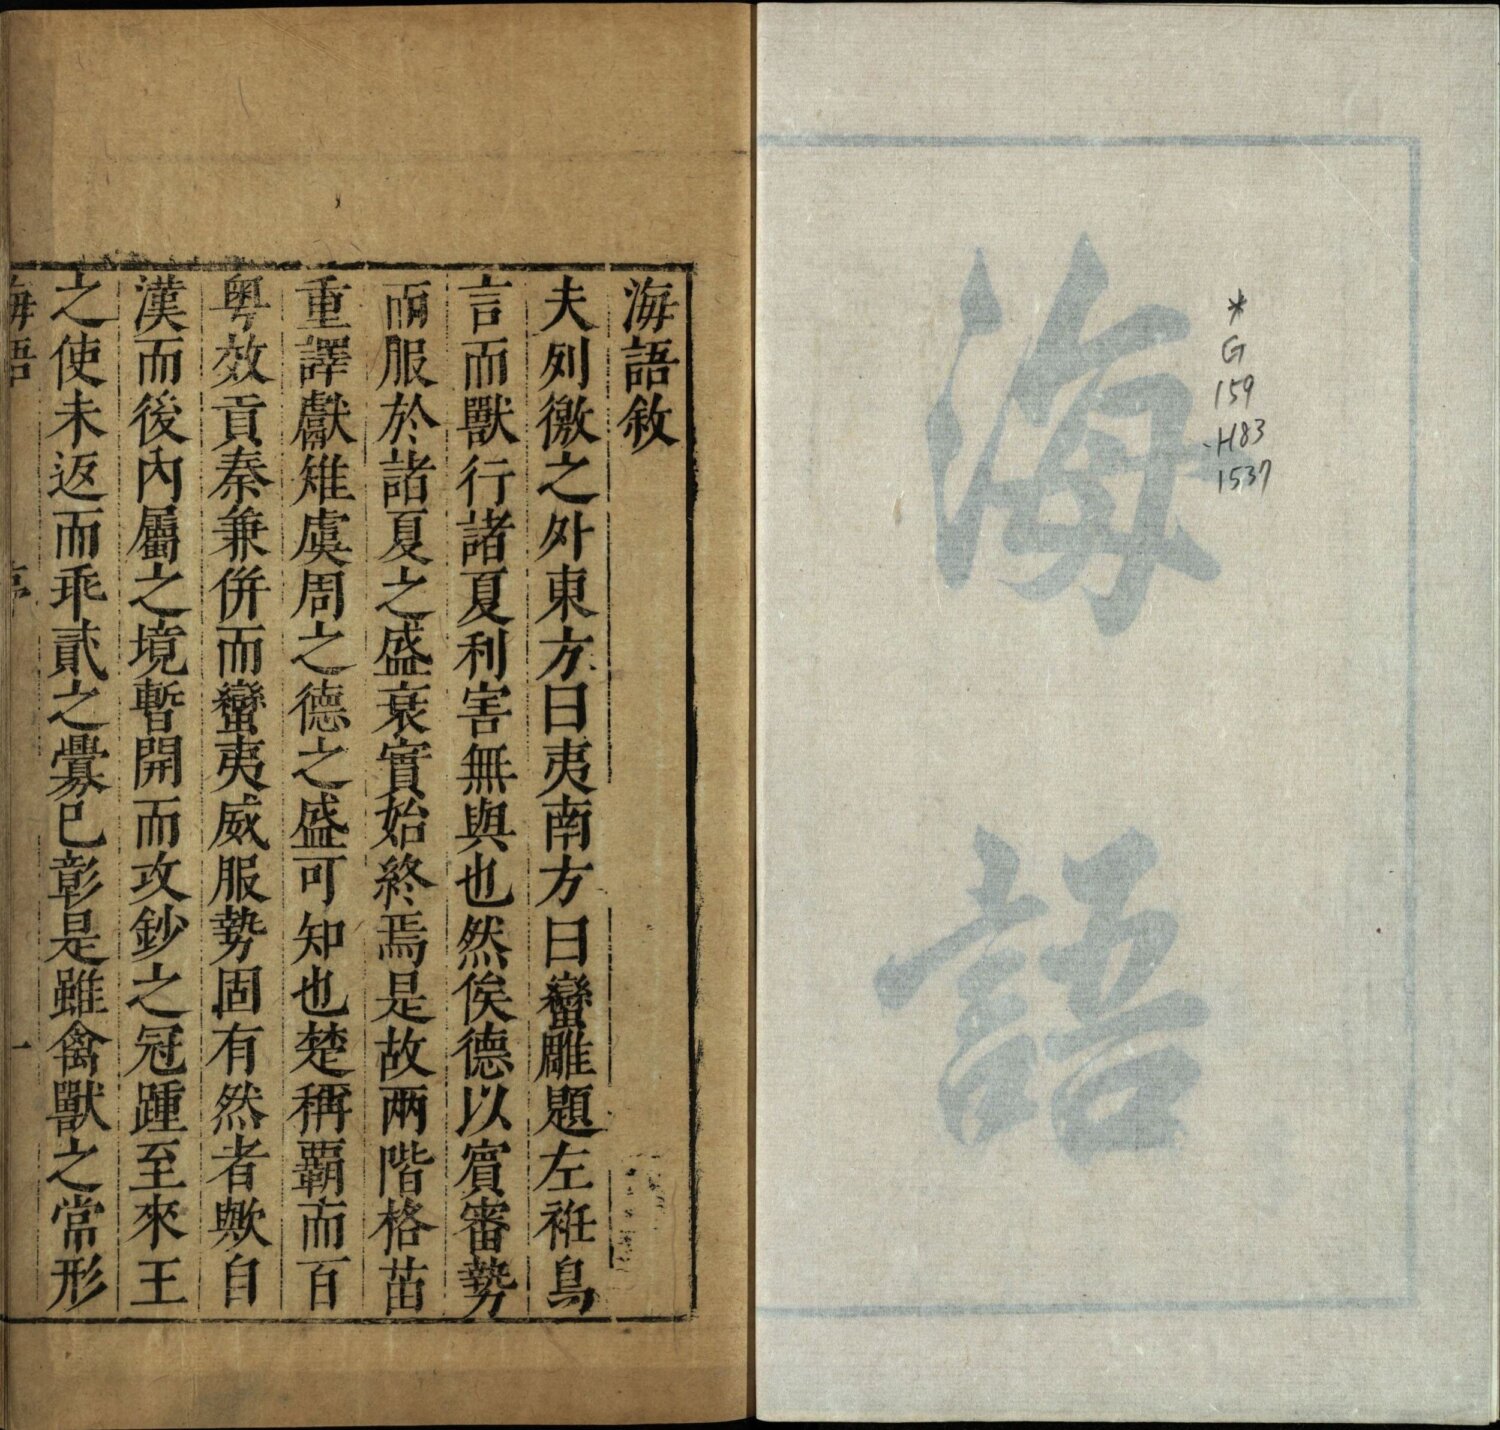 海
語
*
G
159
.H83
1537
海語敘
夫列徼之外東方曰夷南方曰蠻雕題左袵鳥
言而獸行諸夏利害無與也然俟德以賓審勢
而服於諸夏之盛衰實始終焉是故兩階格苗
重譯獻雉虞周之德之盛可知也楚稱霸而百
粵效貢秦兼併而蠻夷威服勢固有然者歟自
漢而後內屬之境暫開而攻鈔之冠踵至來王
之使未返而乖貳之釁已彰是雖禽獸之常形
海語
序
一